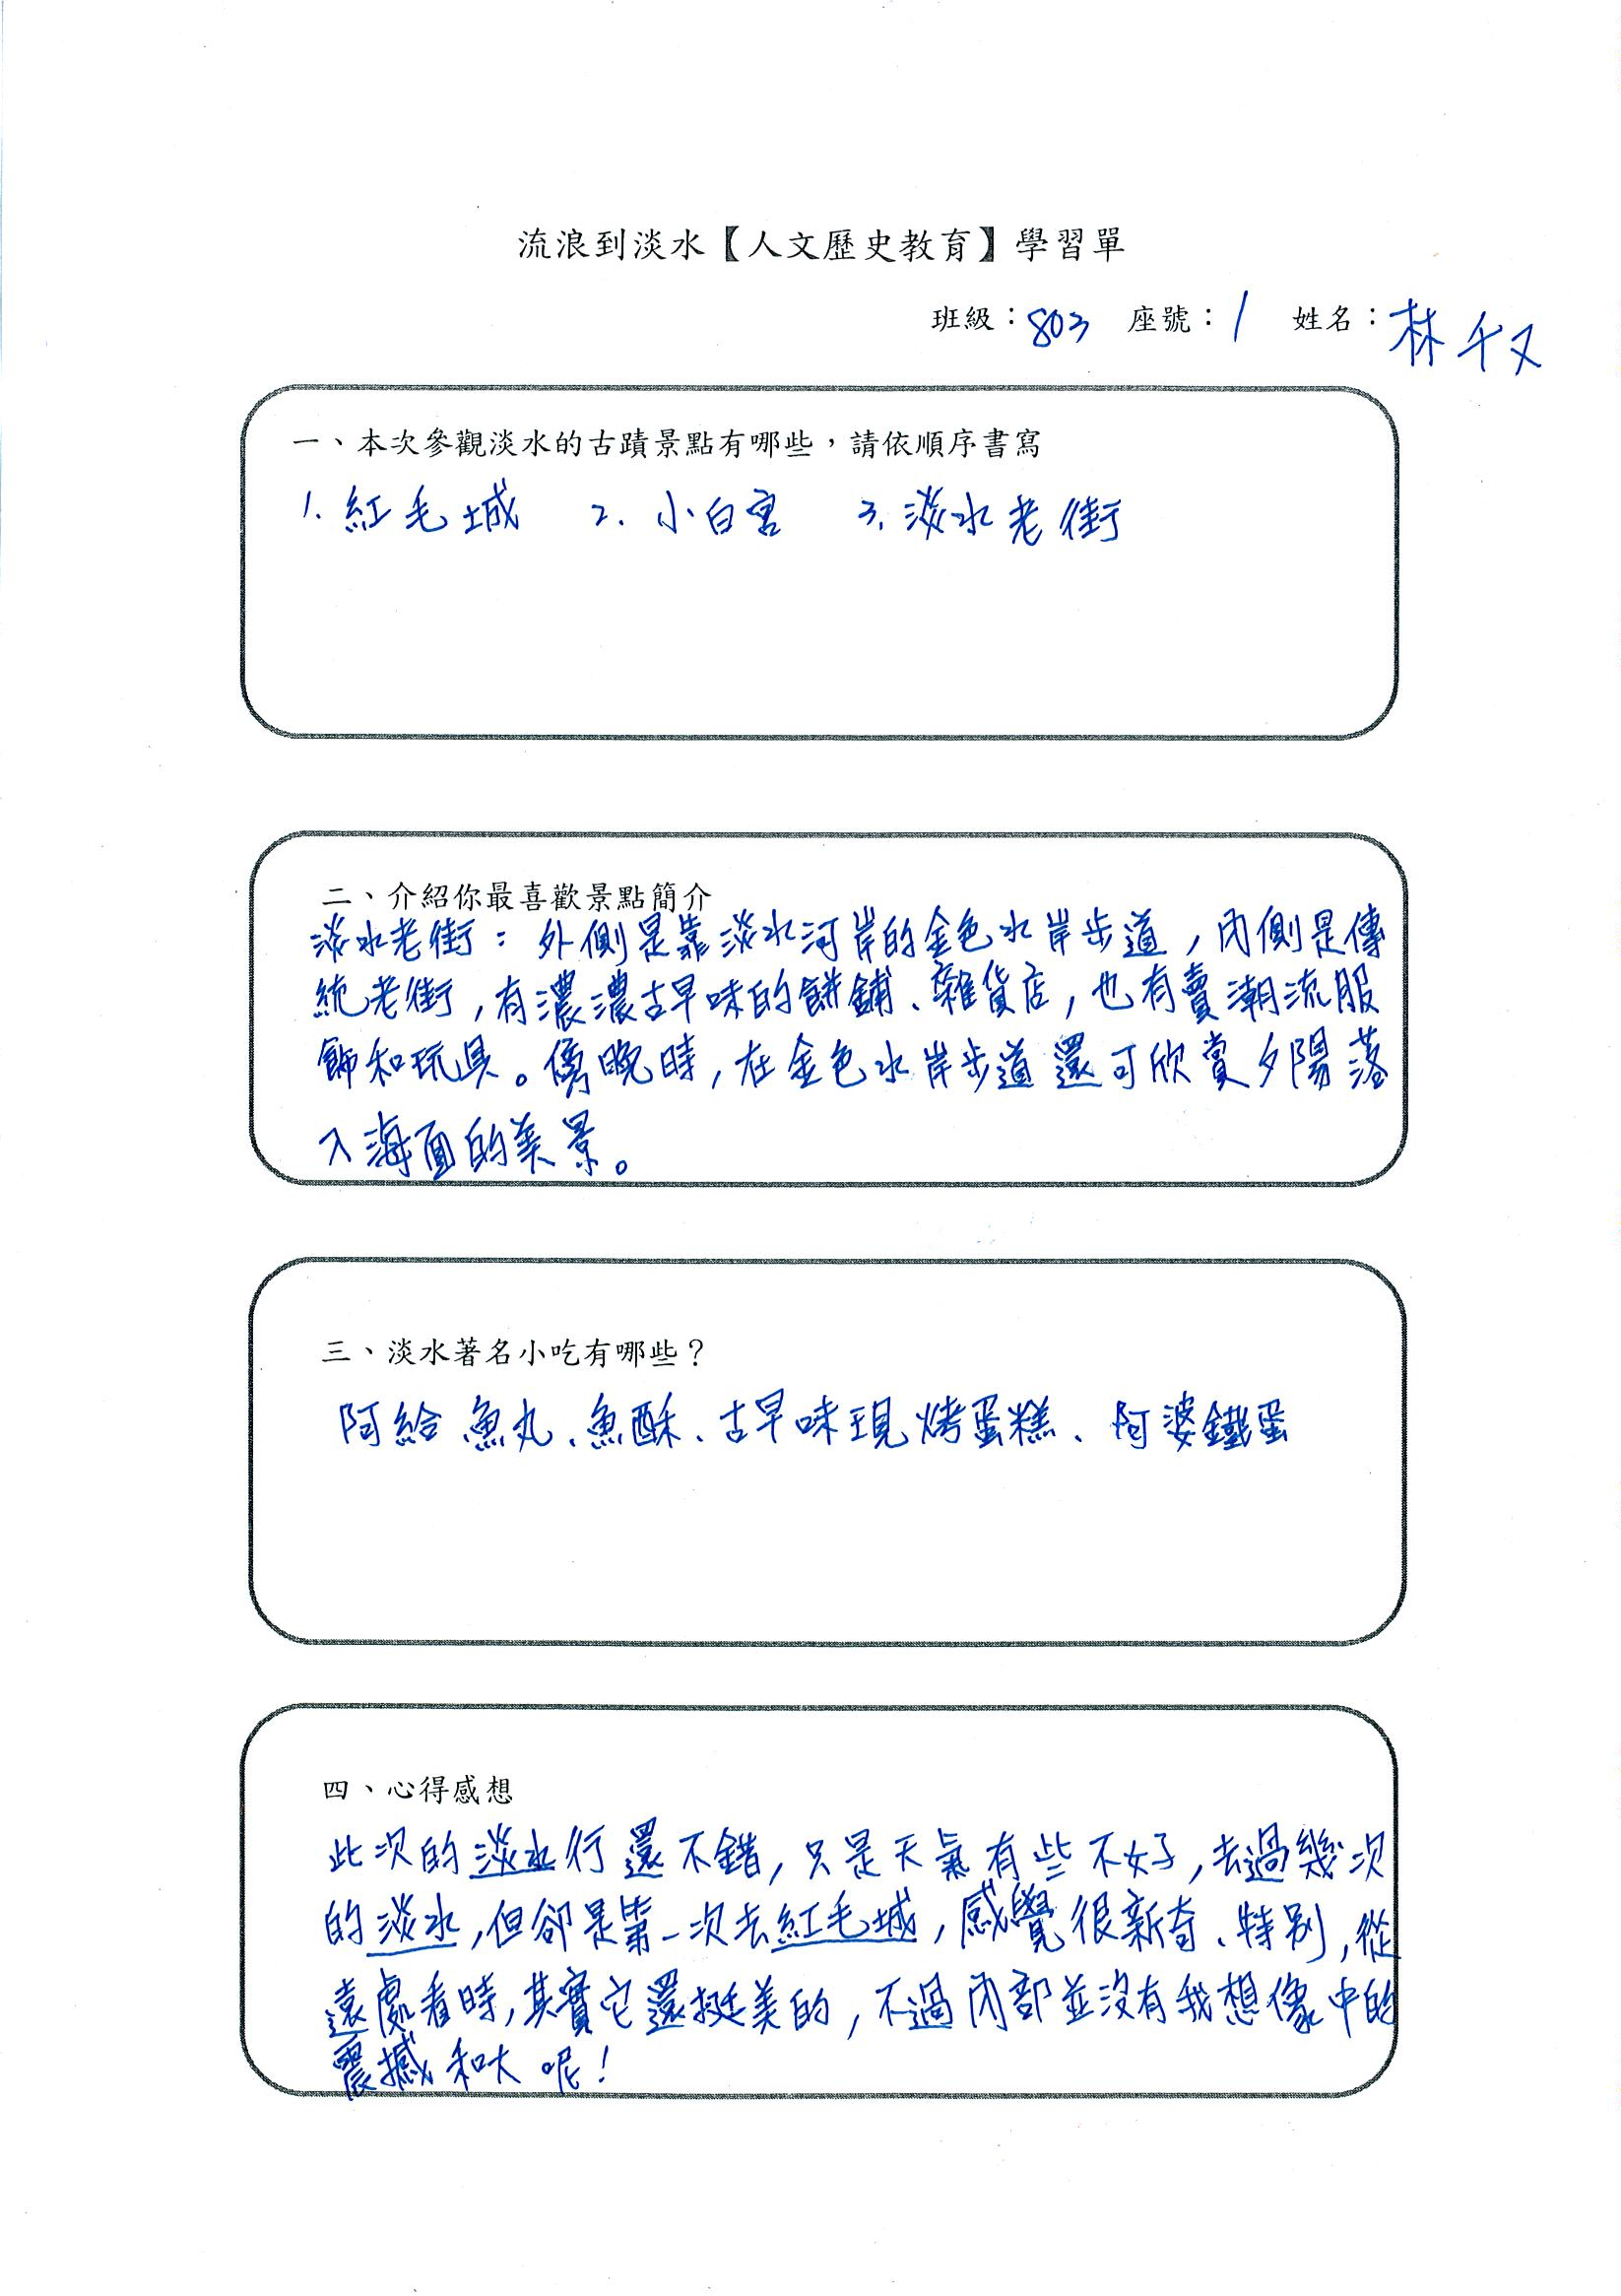 流浪到淡水【人文歷史教育】學習單
班級：803 座號：1 姓名：林千又
一、本次參觀淡水的古蹟景點有哪些，請依順序書寫
1. 紅毛城 2. 小白宮 3. 淡水老街
二、介紹你最喜歡景點簡介
淡水老街：外側是靠淡水河岸的金色水岸步道，內側是傳
統老街，有濃濃古早味的餅鋪、雜貨店，也有賣潮流服
飾和玩具。傍晚時，在金色水岸步道還可欣賞夕陽落
入海面的美景。
三、淡水著名小吃有哪些？
阿給、魚丸、魚酥、古早味現烤蛋糕、阿婆鐵蛋
四、心得感想
此次的淡水行還不錯，只是天氣有些不好，去過幾次
的淡水，但卻是第一次去紅毛城，感覺很新奇、特別，從
遠處看時，其實它還挺美的，不過內部並沒有我想像中的
震撼和大呢！